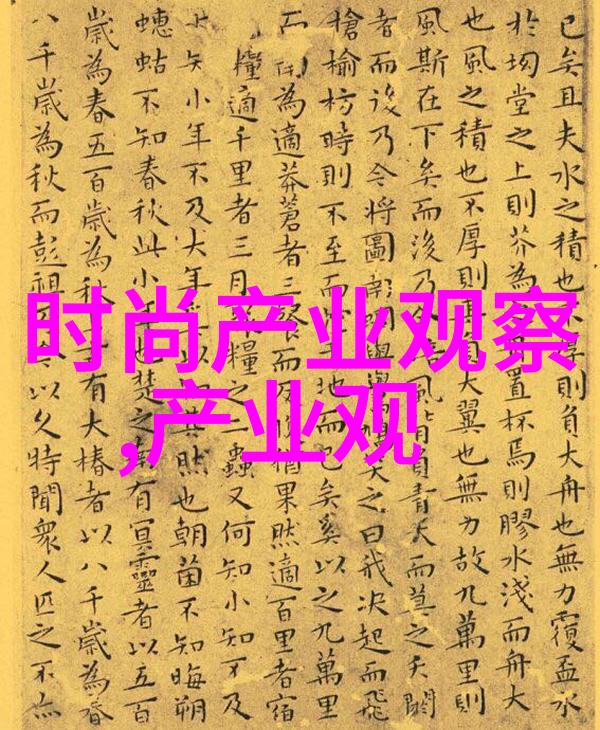 时尚产业观察
,产业观
已矣且夫水之積也厚則負大舟也無力覆盃水
於坳堂之上則芥為置杯焉則膠水淺而舟大
也風之積也不厚則負大翼也無力故九萬里則
風斯在下矣而後乃今風背負青天而莫之夭閼
者而後乃今將圖南蜩與鷽笑之曰我决起而飛
槍榆枋時則不至而地而已矣奚以之九萬里
而為適莽蒼者三飡而反腹猶果然適百里者宿
糧適千里者三月糧之二蟲又何知小知不及
大知小年不及大年以知其然也朝菌不知晦朔
蟪蛄不知春秋此小年也楚之南有冥靈者以五百
歲為春五百歲為秋有大椿者以八千歲為春
八千歲為秋而彭祖今以久特聞衆人匹之不亦